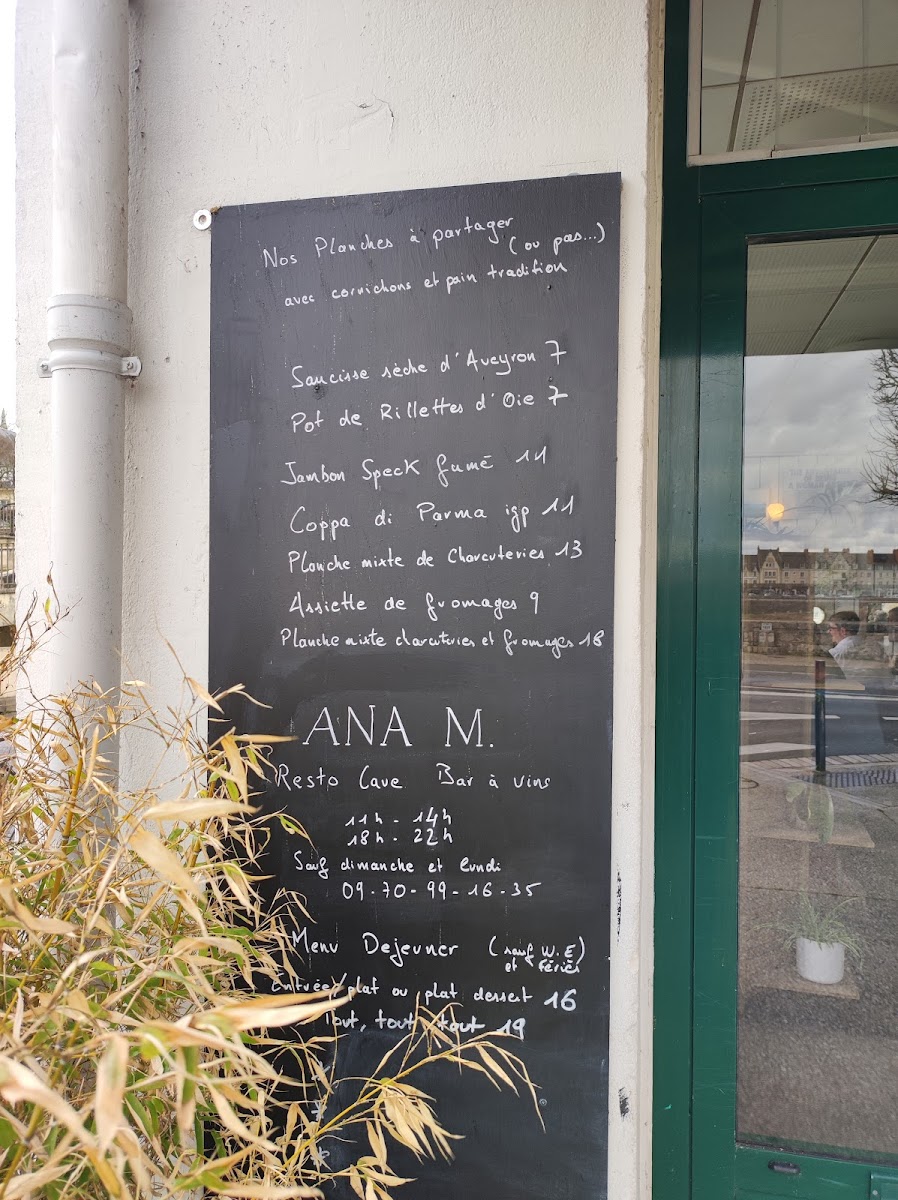 Nos Planches à partager
(ou pas...)
avec cornichons et pain tradition
Saucisse sèche d'Aveyron 7
Pot de Rillettes d'Oie 7
Jambon Speck fumé 11
Coppa di Parma igp 11
Planche mixte de Charcuteries 13
Assiette de fromages 9
Planche mixte charcuteries et fromages 18
ANA M.
Resto Cave Bar à vins
11h - 14h
18h - 22h
Sauf dimanche et lundi
09-70-99-16-35
Menu Dejeuner (sauf W.E
et fériés)
Entrée/plat ou plat dessert 16
Tout, tout, tout 19